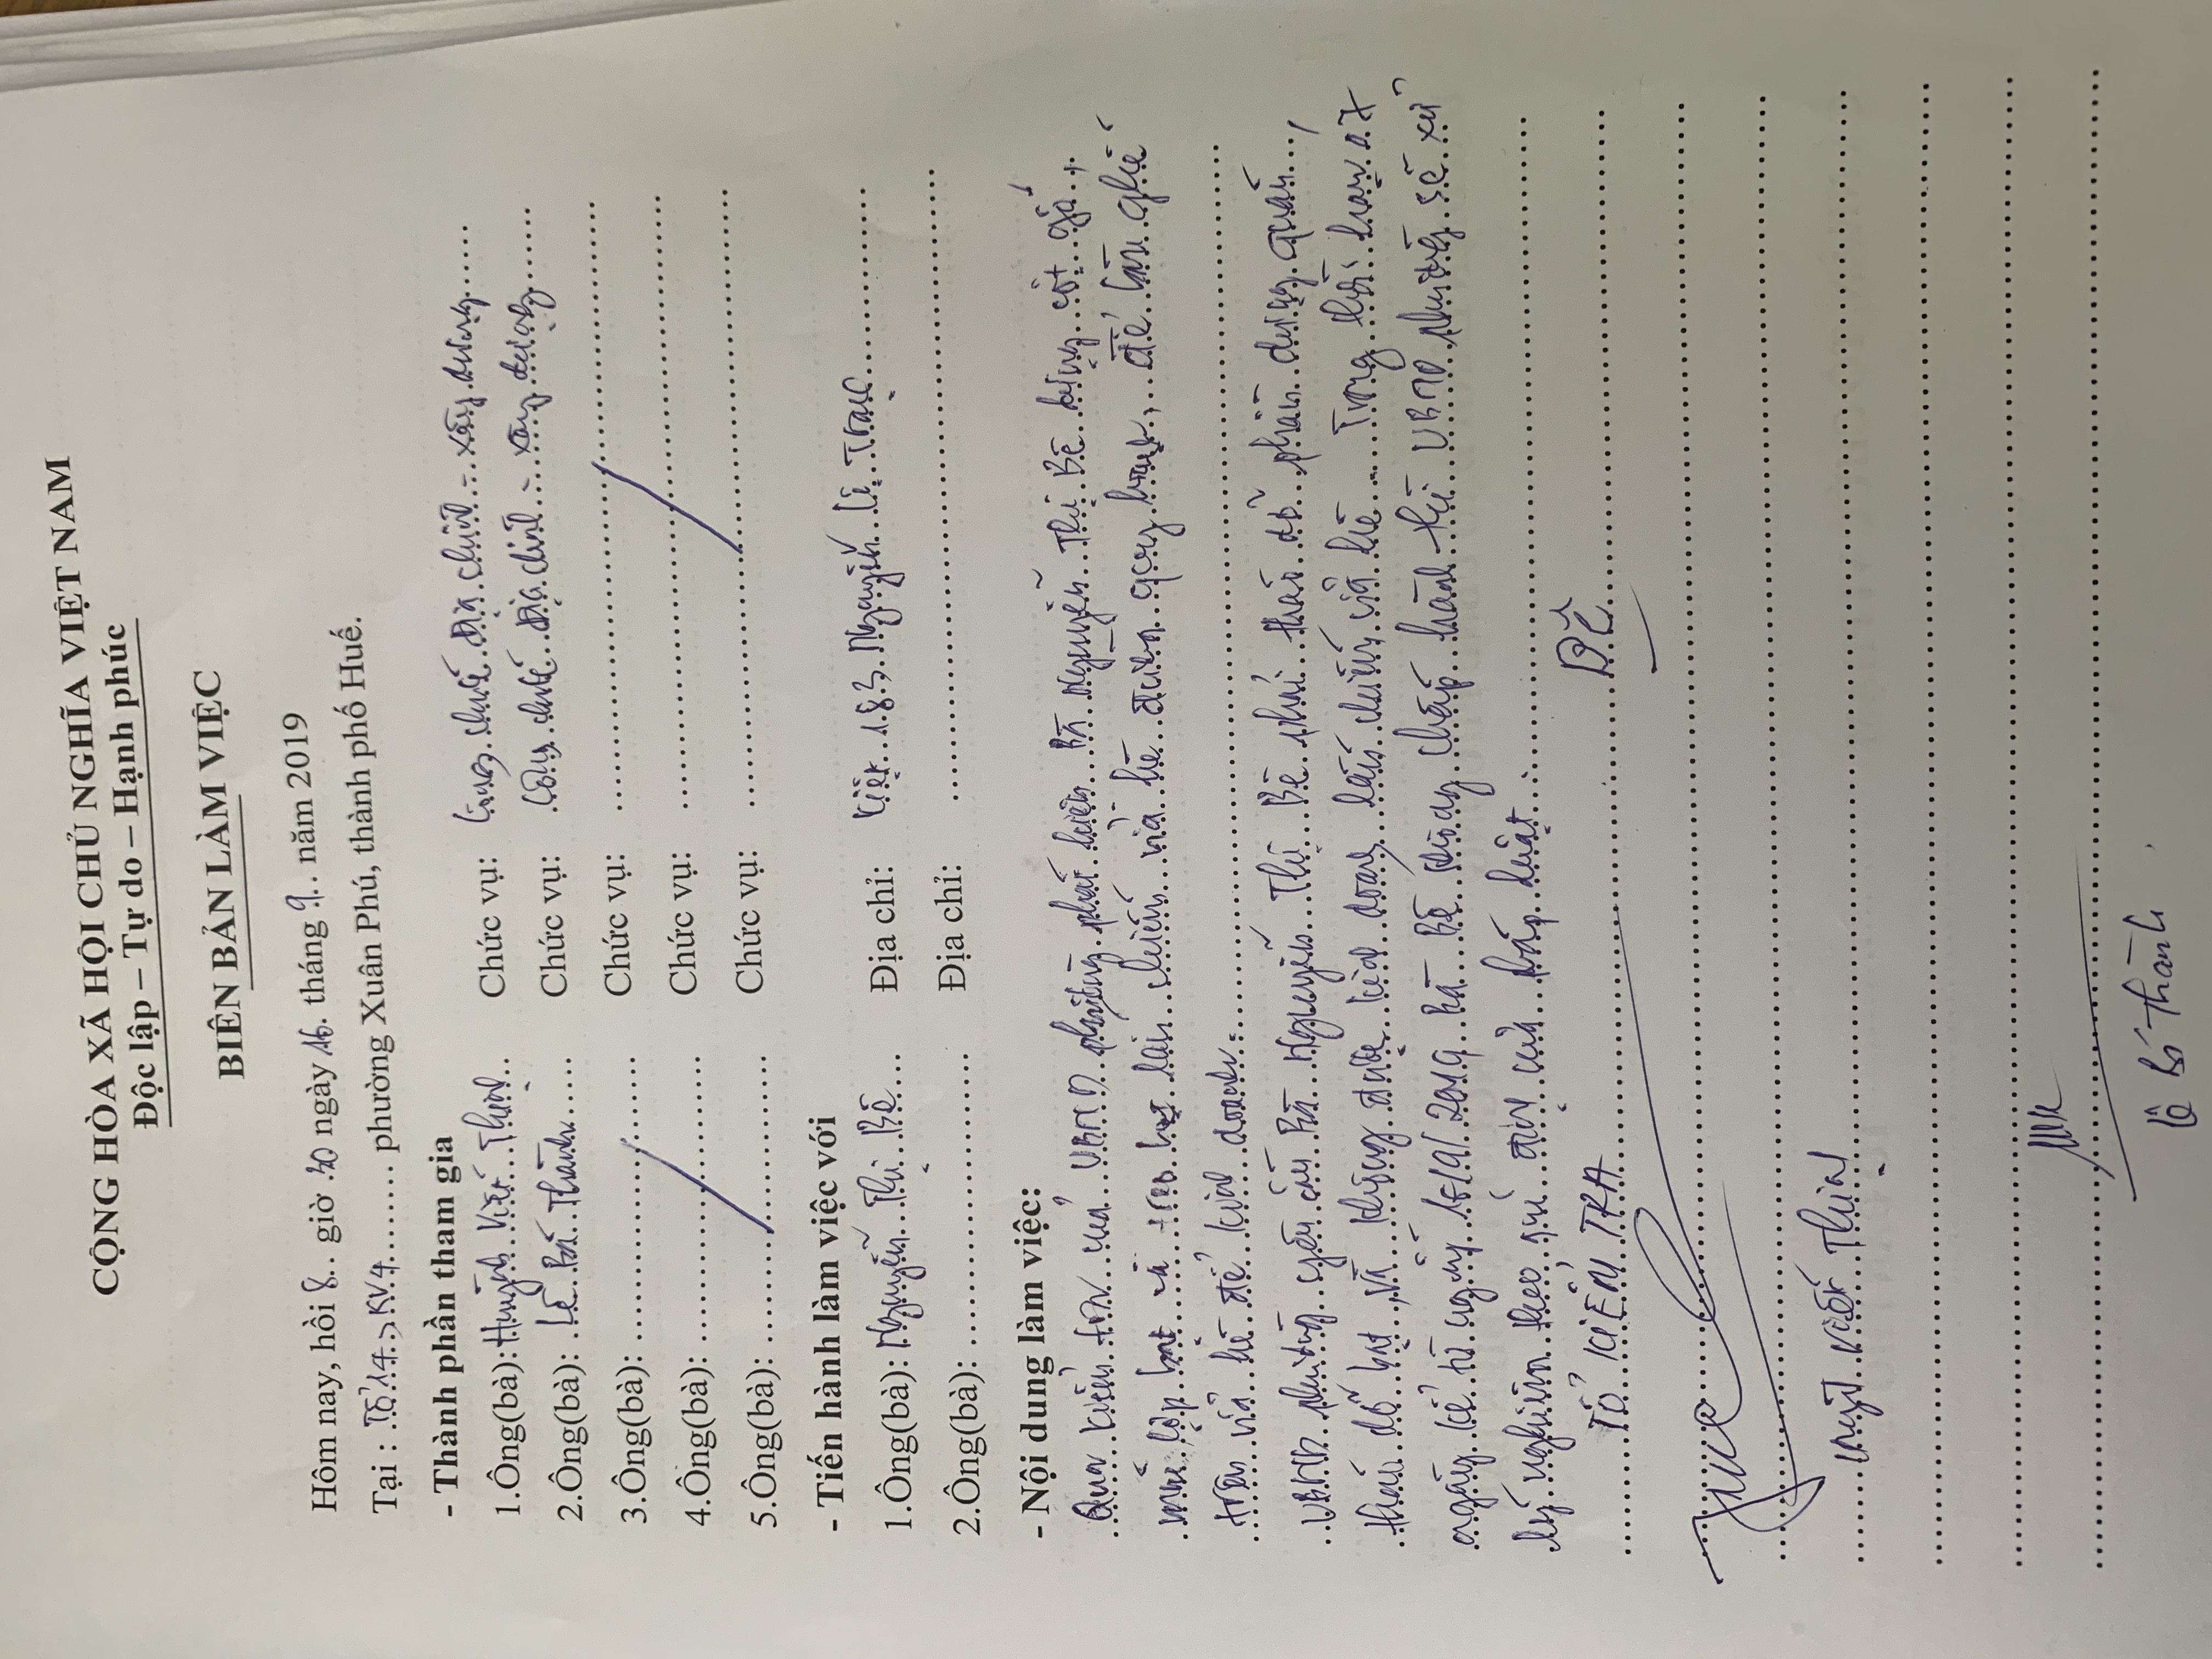 CỘNG HÒA XÃ HỘI CHỦ NGHĨA VIỆT NAM
Độc lập – Tự do – Hạnh phúc
BIÊN BẢN LÀM VIỆC
Hôm nay, hồi 8 giờ 30 ngày 16 tháng 9 năm 2019
Tại : Tổ 14, KV4 phường Xuân Phú, thành phố Huế.
- Thành phần tham gia
1.Ông(bà): Huỳnh Viết Thịnh Chức vụ: Công chức địa chính - xây dựng
2.Ông(bà): Lê Bá Thành Chức vụ: Công chức địa chính - xây dựng
3.Ông(bà): Chức vụ:
4.Ông(bà): Chức vụ:
5.Ông(bà): Chức vụ:
- Tiến hành làm việc với
1.Ông(bà): Nguyễn Thị Bê Địa chỉ: Kiệt 183 Nguyễn Lộ Trạch
2.Ông(bà): Địa chỉ:
- Nội dung làm việc:
Qua kiểm tra của UBND phường phát hiện Bà Nguyễn Thị Bê dựng cột gỗ,
mái lợp bạt và lấn chiếm vỉa hè để bàn ghế
trên vỉa hè để kinh doanh.
UBND phường yêu cầu Bà Nguyễn Thị Bê phải tháo dỡ phần dựng quán,
tháo dỡ bạt, và không được kinh doanh lấn chiếm vỉa hè. Trong thời hạn 07
ngày kể từ ngày 16/9/2019 Bà Bê không chấp hành thì UBND phường sẽ xử
lý nghiêm theo quy định của pháp luật.
TỔ KIỂM TRA Bê
Huỳnh Viết Thịnh
Lê Bá Thành